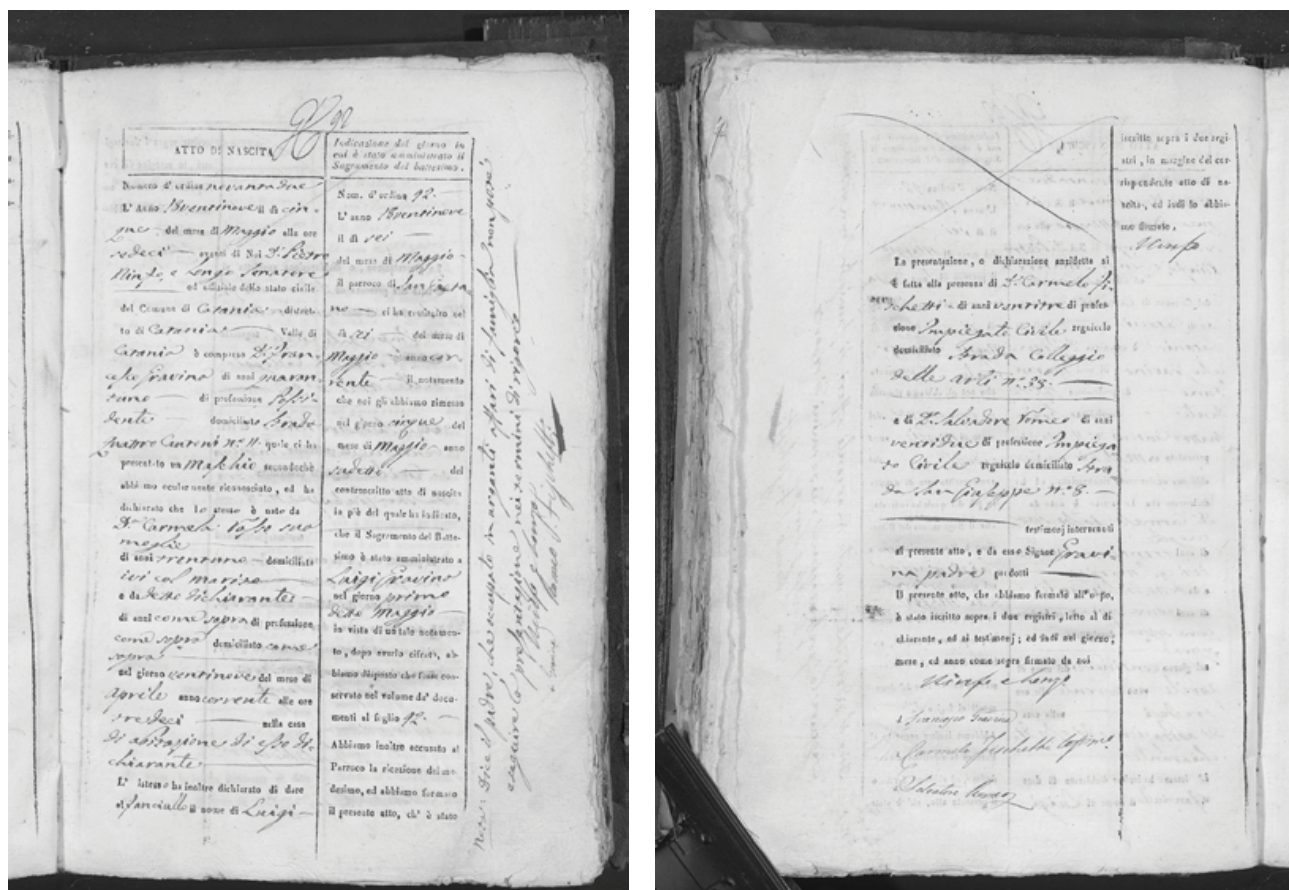 92
ATTO DI NASCITA
Numero d'ordine novantadue
L'Anno 18ventinove il dì cin-
que del mese di Maggio alle ore
sedeci avanti di Noi D. Pietro
Ninfo, e Longo Senatore
ed uffiziale dello stato civile
del Comune di Catania distret-
to di Catania Valle di
Catania è comparso D. Fran-
cesco Gravina di anni quaran-
tuno di professione Possi-
dente domiciliato Strada
quattro Cantoni n. 11 quale ci ha
presentato un Maschio secondochè
abbiamo ocularmente riconosciuto, ed ha
dichiarato che lo stesso è nato da
D.a Carmela sua
moglie
di anni trentuno domiciliata
ivi col marito
e da detto dichiarante
di anni come sopra di professione
come sopra domiciliato come
sopra
nel giorno ventinove del mese di
Aprile anno corrente alle ore
tredeci nella casa
di abitazione di esso di-
chiarante
L'istesso ha inoltre dichiarato di dare
al fanciullo il nome di Luigi
Indicazione del giorno in
cui è stato amministrato il
Sagramento del battesimo.
Num. d'ordine 92
L'anno 18ventinove
il dì sei
del mese di Maggio
il parroco di
ci ha restituito nel
dì sei del mese di
Maggio anno cor-
rente il notamento
che noi gli abbiamo rimesso
nel giorno cinque del
mese di Maggio anno
sudetto del
controscritto atto di nascita
in piè del quale ha indicato,
che il Sagramento del Batte-
simo è stato amministrato a
Luigi Gravina
nel giorno primo
detto Maggio
in vista di un tale notamen-
to, dopo averlo cifrato, ab-
biamo disposto che fosse con-
servato nel volume de' docu-
menti al foglio 92
Abbiamo inoltre accusato al
Parroco la ricezione del me-
desimo, ed abbiamo formato
il presente atto, ch' è stato
Dice il padre, che occupato in urgenti affari di famiglia non potè
eseguire la presentazione nei termini di rigore
iscritto sopra i due regi-
stri, in margine del cor-
rispondente atto di na-
scita, ed indi lo abbia-
mo firmato.
Ninfo
La presentazione, o dichiarazione anzidetta si
è fatta alla presenza di D. Carmelo Fi-
chetti di anni ventitre di profes-
sione Impiegato Civile regnicolo
domiciliato Strada Colleggio
delle arti n. 38.
e di D. Salvatore di anni
ventidue di professione Impiega-
to Civile regnicolo domiciliato Stra-
da San Giuseppe n. 8.
testimonj intervenuti
al presente atto, e da esso Signor Gravi-
na padre prodotti
Il presente atto, che abbiamo formato all'uopo,
è stato iscritto sopra i due registri, letto al di-
chiarante, ed ai testimonj; ed indi nel giorno;
mese, ed anno come sopra firmato da noi
Ninfo e Longo
Francesco Gravina
Carmelo Fichetti
Salvatore